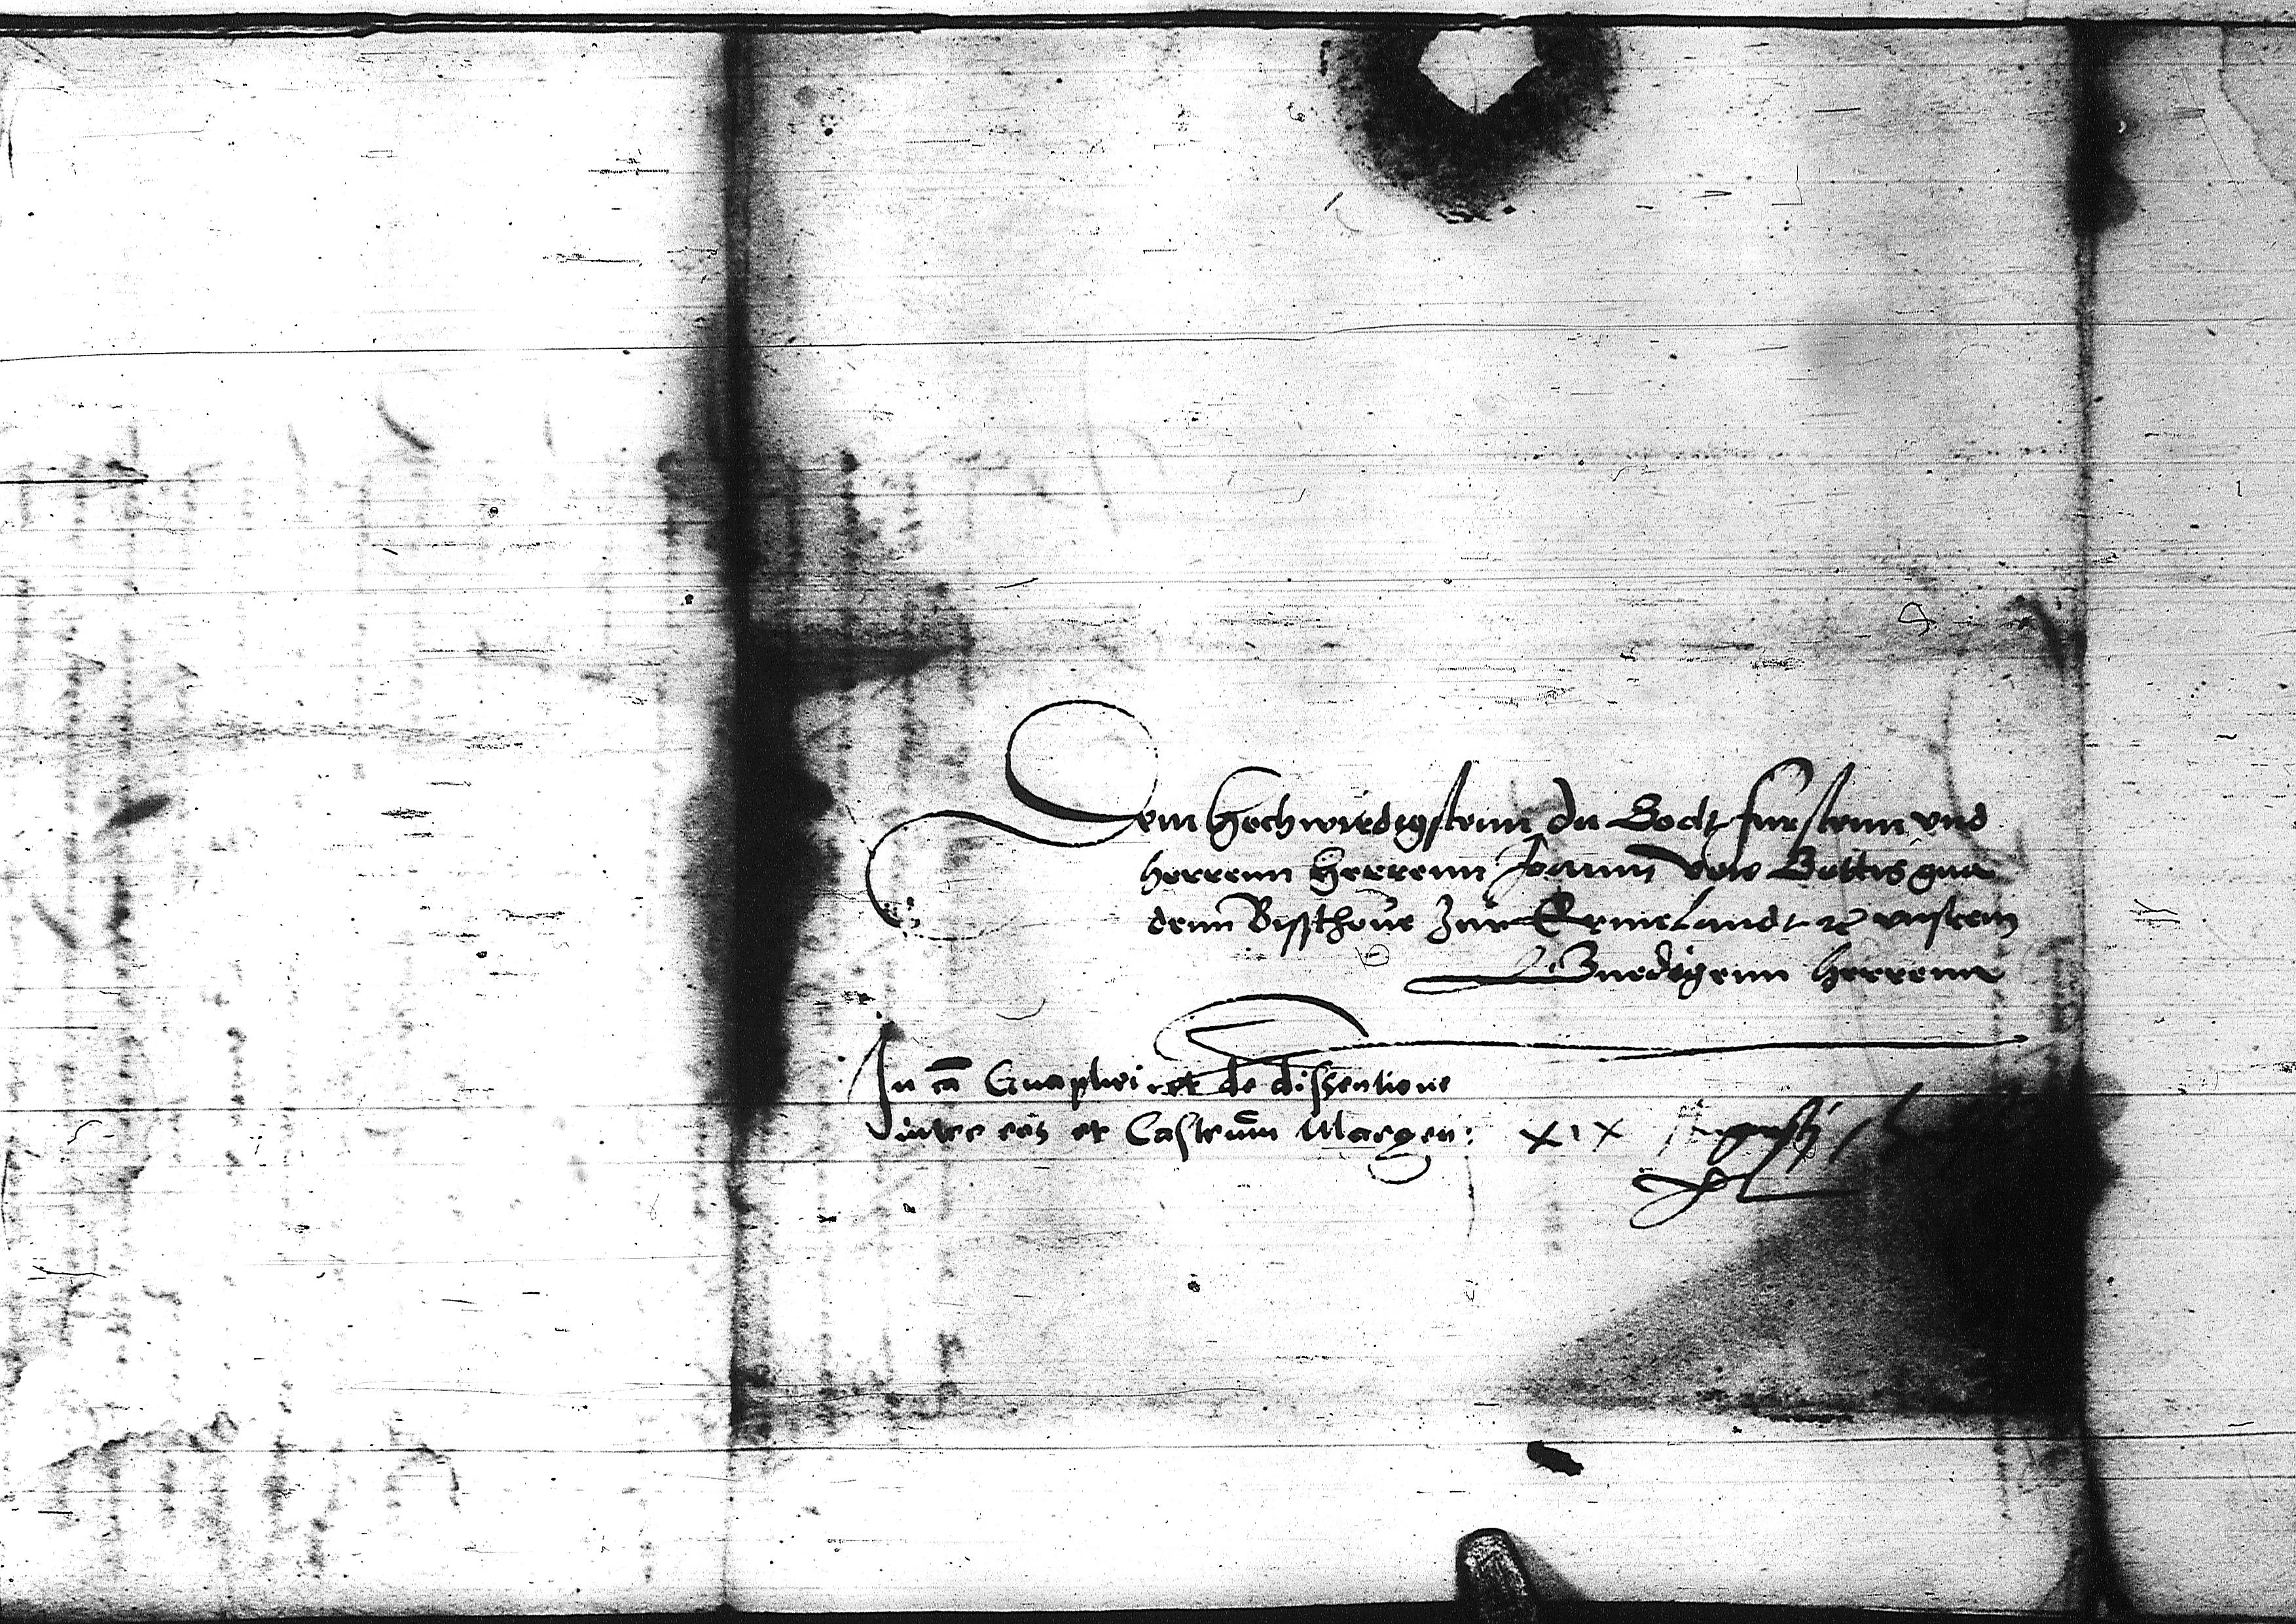 Dem Hochwirdigstenn Jn Godt furstenn vnd
herrenn Herrenn Joann vonn Gottis gna
denn Bisschoue Zur Ermelandt etc vnserm
Gnedigenn Herrenn
In cā Gnaphei et de dissentione
inter eos et Castrum Margen: XIX Augusti